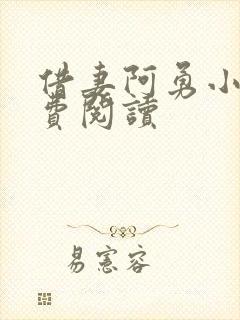 借妻阿勇小
費閱讀
易憲容